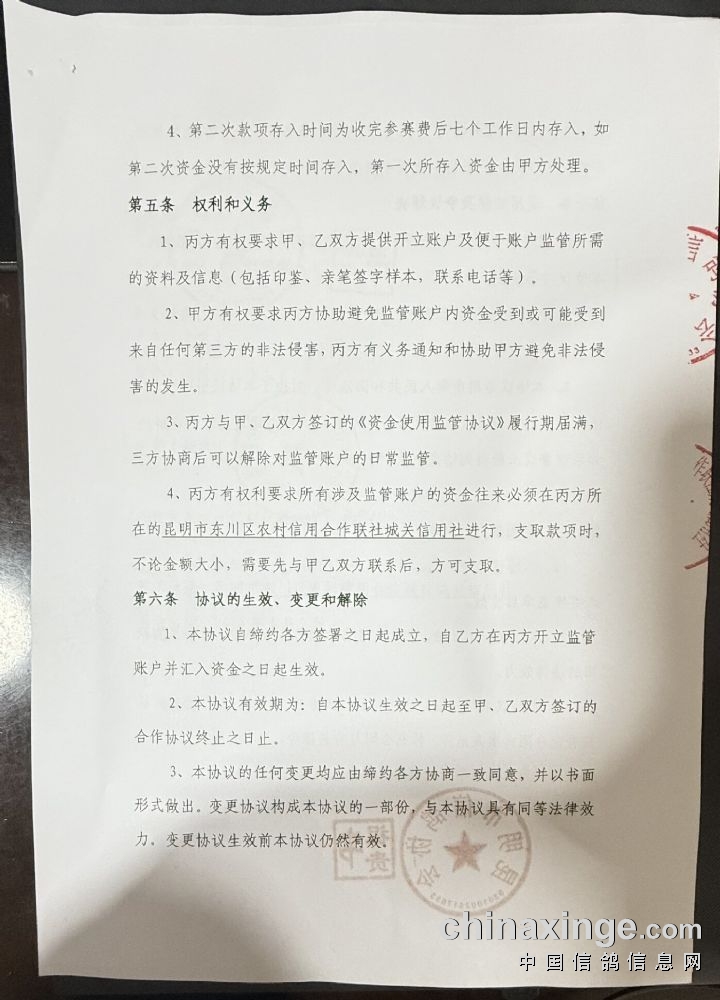 4、第二次款项存入时间为收完参赛费后七个工作日内存入，如
第二次资金没有按规定时间存入，第一次所存入资金由甲方处理。
第五条 权利和义务
1、丙方有权要求甲、乙双方提供开立账户及便于账户监管所需
的资料及信息（包括印鉴、亲笔签字样本，联系电话等）。
2、甲方有权要求丙方协助避免监管账户内资金受到或可能受到
来自任何第三方的非法侵害，丙方有义务通知和协助甲方避免非法侵
害的发生。
3、丙方与甲、乙双方签订的《资金使用监管协议》履行期届满，
三方协商后可以解除对监管账户的日常监管。
4、丙方有权利要求所有涉及监管账户的资金往来必须在丙方所
在的昆明市东川区农村信用合作联社城关信用社进行，支取款项时，
不论金额大小，需要先与甲乙双方联系后，方可支取。
第六条 协议的生效、变更和解除
1、本协议自缔约各方签署之日起成立，自乙方在丙方开立监管
账户并汇入资金之日起生效。
2、本协议有效期为：自本协议生效之日起至甲、乙双方签订的
合作协议终止之日止。
3、本协议的任何变更均应由缔约各方协商一致同意，并以书面
形式做出。变更协议构成本协议的一部份，与本协议具有同等法律效
力。变更协议生效前本协议仍然有效。
chinaxinge.com
中国信鸽信息网